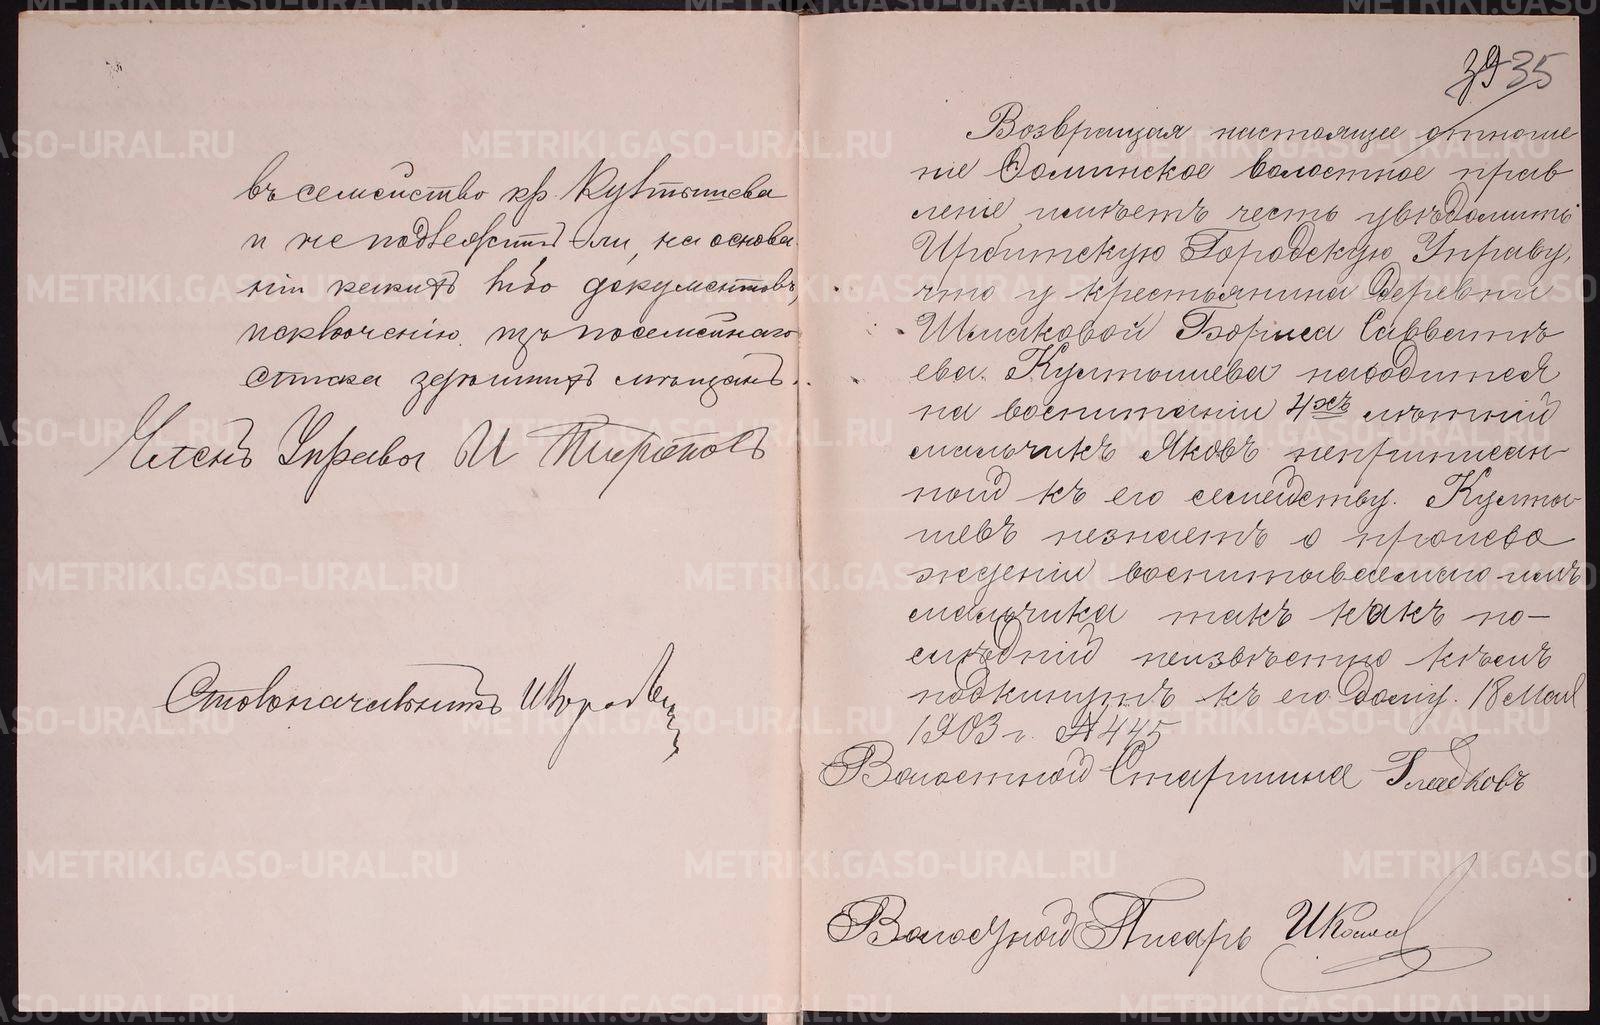 въ семейство кр. Култышева
и не подлежитъ ли, на основа-
ніи какихъ либо документовъ,
исключенію изъ посемейнаго
списка здѣшнихъ мѣщанъ.
Членъ Управы И
Столоначальникъ
35
Возвращая настоящее отноше
ніе волостное прав
леніе имѣетъ честь увѣдомить
Ирбитскую Городскую Управу,
что у крестьянина деревни
Шмаковой Бориса Савватѣ
ева Култышева находится
на воспитаніи 4хъ лѣтній
мальчикъ Яковъ неприписан
ной къ его семейству. Култы
шевъ незнаетъ о происхо
жденіи воспитываемаго имъ
мальчика такъ какъ по-
слѣдній неизвѣстно кѣмъ
подкинутъ къ его дому. 18 Мая
1903 г. № 445
Волостной Старшина Гладковъ
Волостной Писарь
METRIKI.GASO-URAL.RU